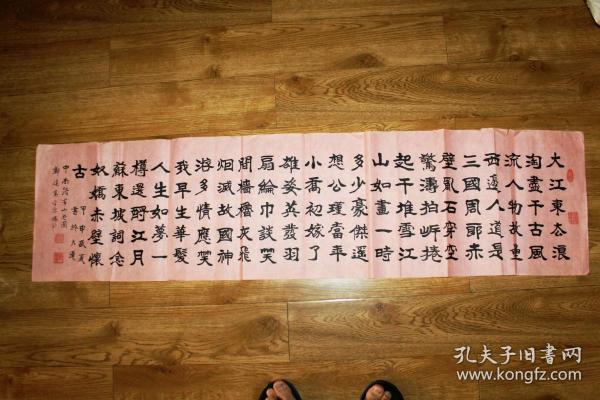 大江東去浪
淘盡千古風
流人物故壘
西邊人道是
三國周郎赤
壁亂石穿空
驚濤拍岸捲
起千堆雪江
山如畫一時
多少豪傑遙
想公瑾當年
小喬初嫁了
雄姿英發羽
扇綸巾談笑
間檣櫓灰飛
烟滅故國神
游多情應笑
我早生華髮
人生如夢一
樽還酹江月
蘇東坡詞念
奴嬌赤壁懷
古
甲申歲夏
孔夫子旧书网
www.kongfz.com